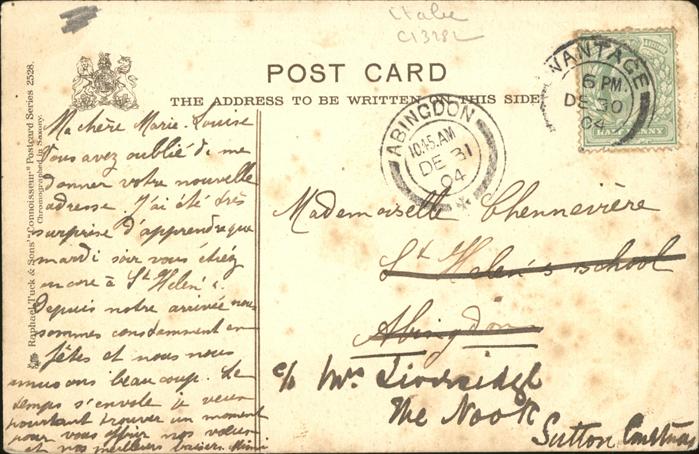 Italie
C13282
Raphael Tuck & Sons' "Connoisseur" Postcard Series 2528.
Chromographed in Saxony.
POST CARD
THE ADDRESS TO BE WRITTEN ON THIS SIDE
WANTAGE
6 PM
DE 30
04
HALFPENNY
ABINGDON
10.45.AM
DE 31
04
Ma chère Marie-Louise
Vous avez oublié de me
donner votre nouvelle
adresse. J'ai été très
surprise d'apprendre que
mardi soir vous étiez
encore à St Helen's.
Depuis notre arrivée nous
sommes constamment en
fêtes et nous nous
amusons beaucoup. Le
temps s'envole je veux
pourtant trouver un moment
pour vous offrir nos vœux
et nos meilleurs baisers. Mimi
Mademoiselle Chennevière
St Helen's school
Abingdon
c/o Mrs
The Nook
Sutton Courtenay